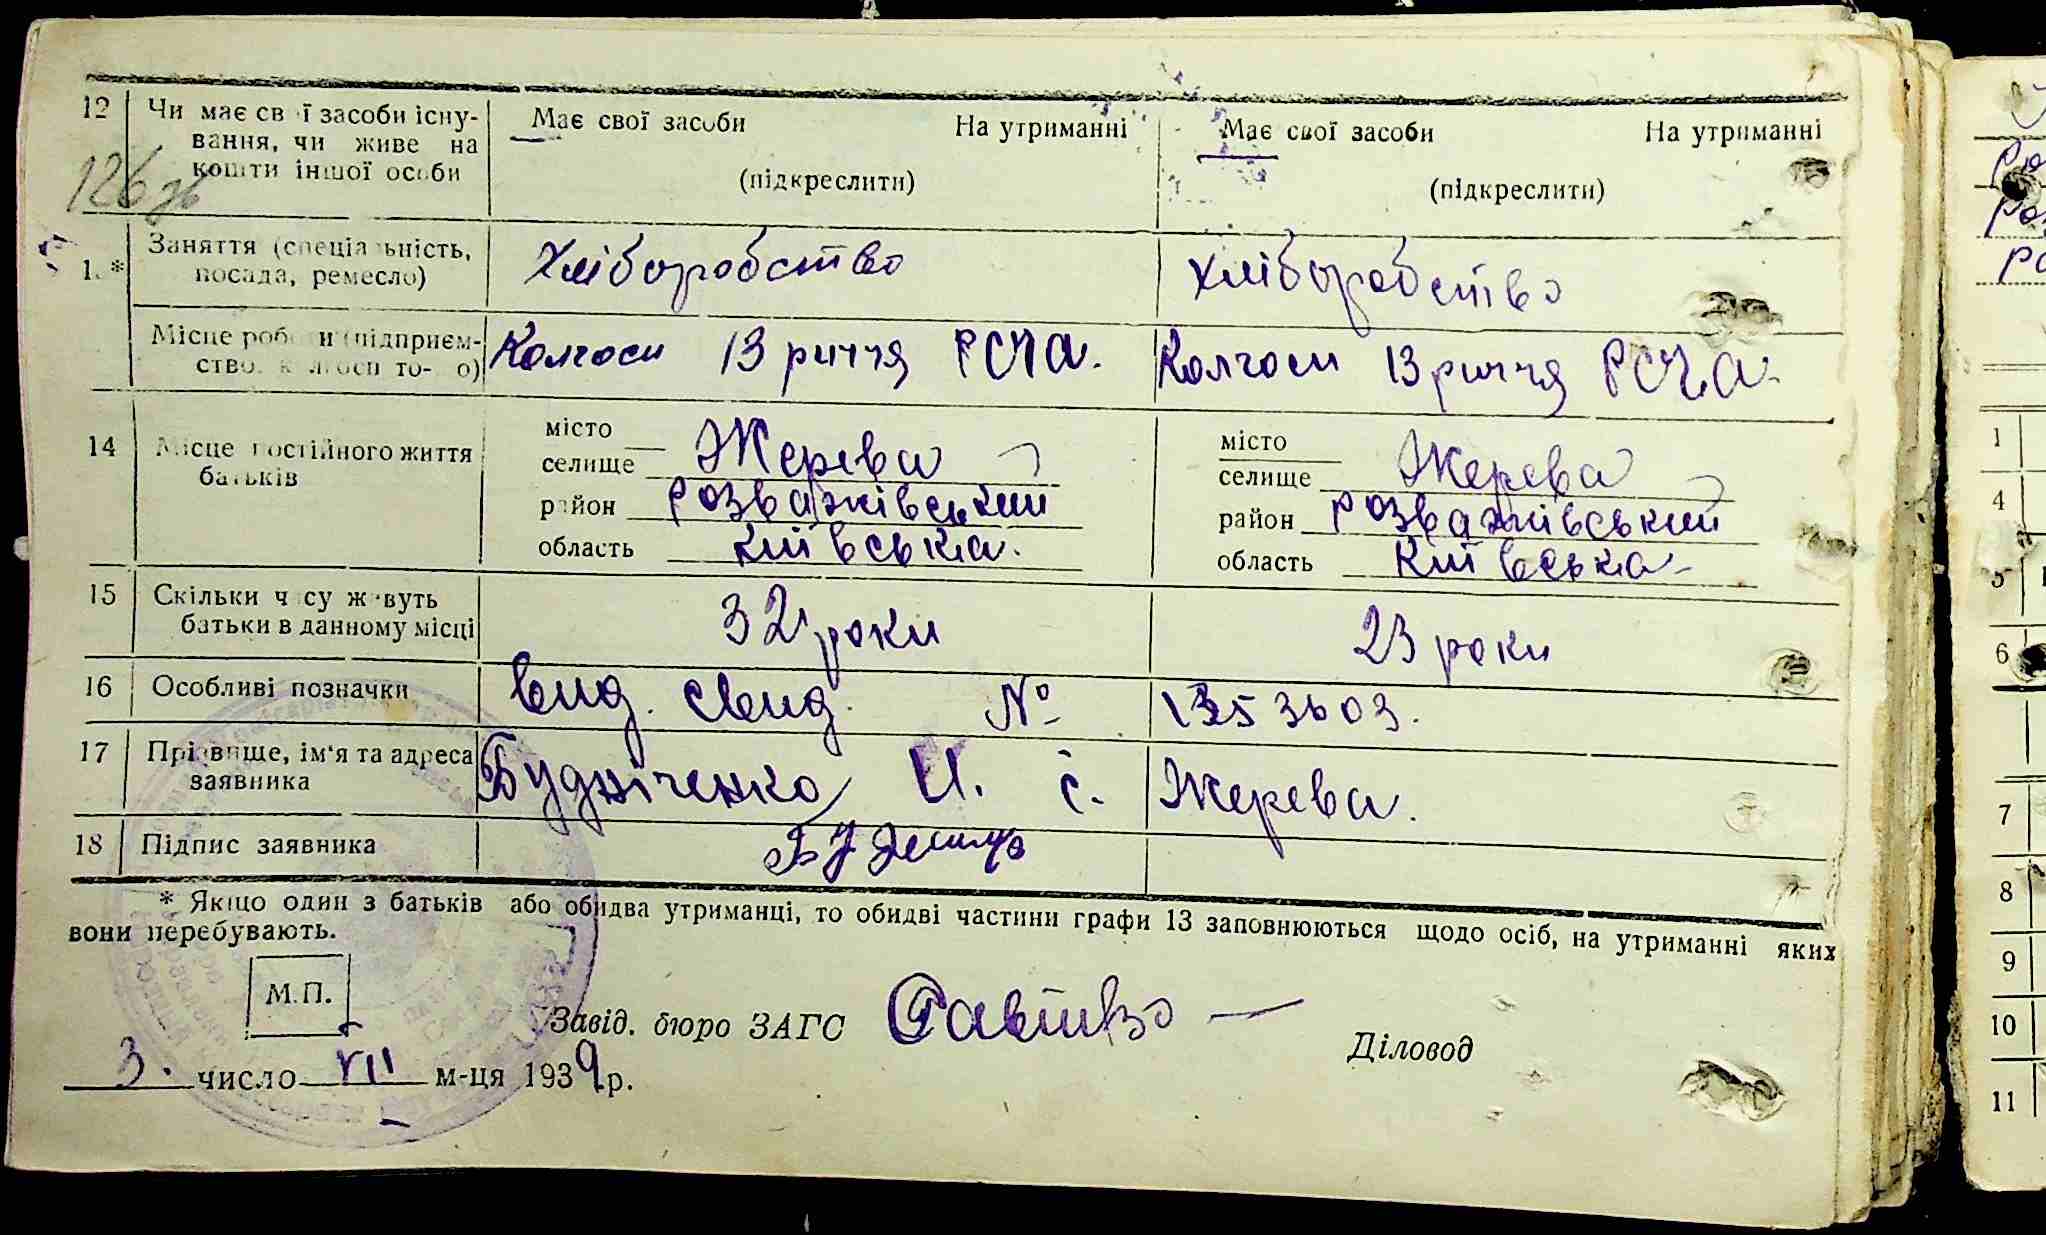 12 Чи має свої засоби існу- Має свої засоби На утриманні Має свої засоби На утриманні
вання, чи живе на
кошти іншої особи (підкреслити) (підкреслити)
126 зв
Заняття (спеціальність, Хліборобство Хліборобство
1 * посада, ремесло)
Місце роботи (підприєм- Колгосп 13 риччя РСЧА. Колгосп 13 риччя РСЧА.
ство, колгосп то- о)
14 Місце постійного життя місто місто
батьків селище Жерева селище Жерева
район Розважівський район Розважівський
область Київська. область Київська
15 Скільки часу живуть 32 роки 23 роки
батьки в данному місці
16 Особливі позначки Вид. свид. № 1353603.
17 Прізвище, ім'я та адреса Будніченко И. с. Жерева.
заявника
18 Підпис заявника
* Якщо один з батьків або обидва утриманці, то обидві частини графи 13 заповнюються щодо осіб, на утриманні яких
вони перебувають.
М.П.
Завід. бюро ЗАГС Діловод
3. число VII м-ця 1939 р.
1
4
5
6
7
8
9
10
11